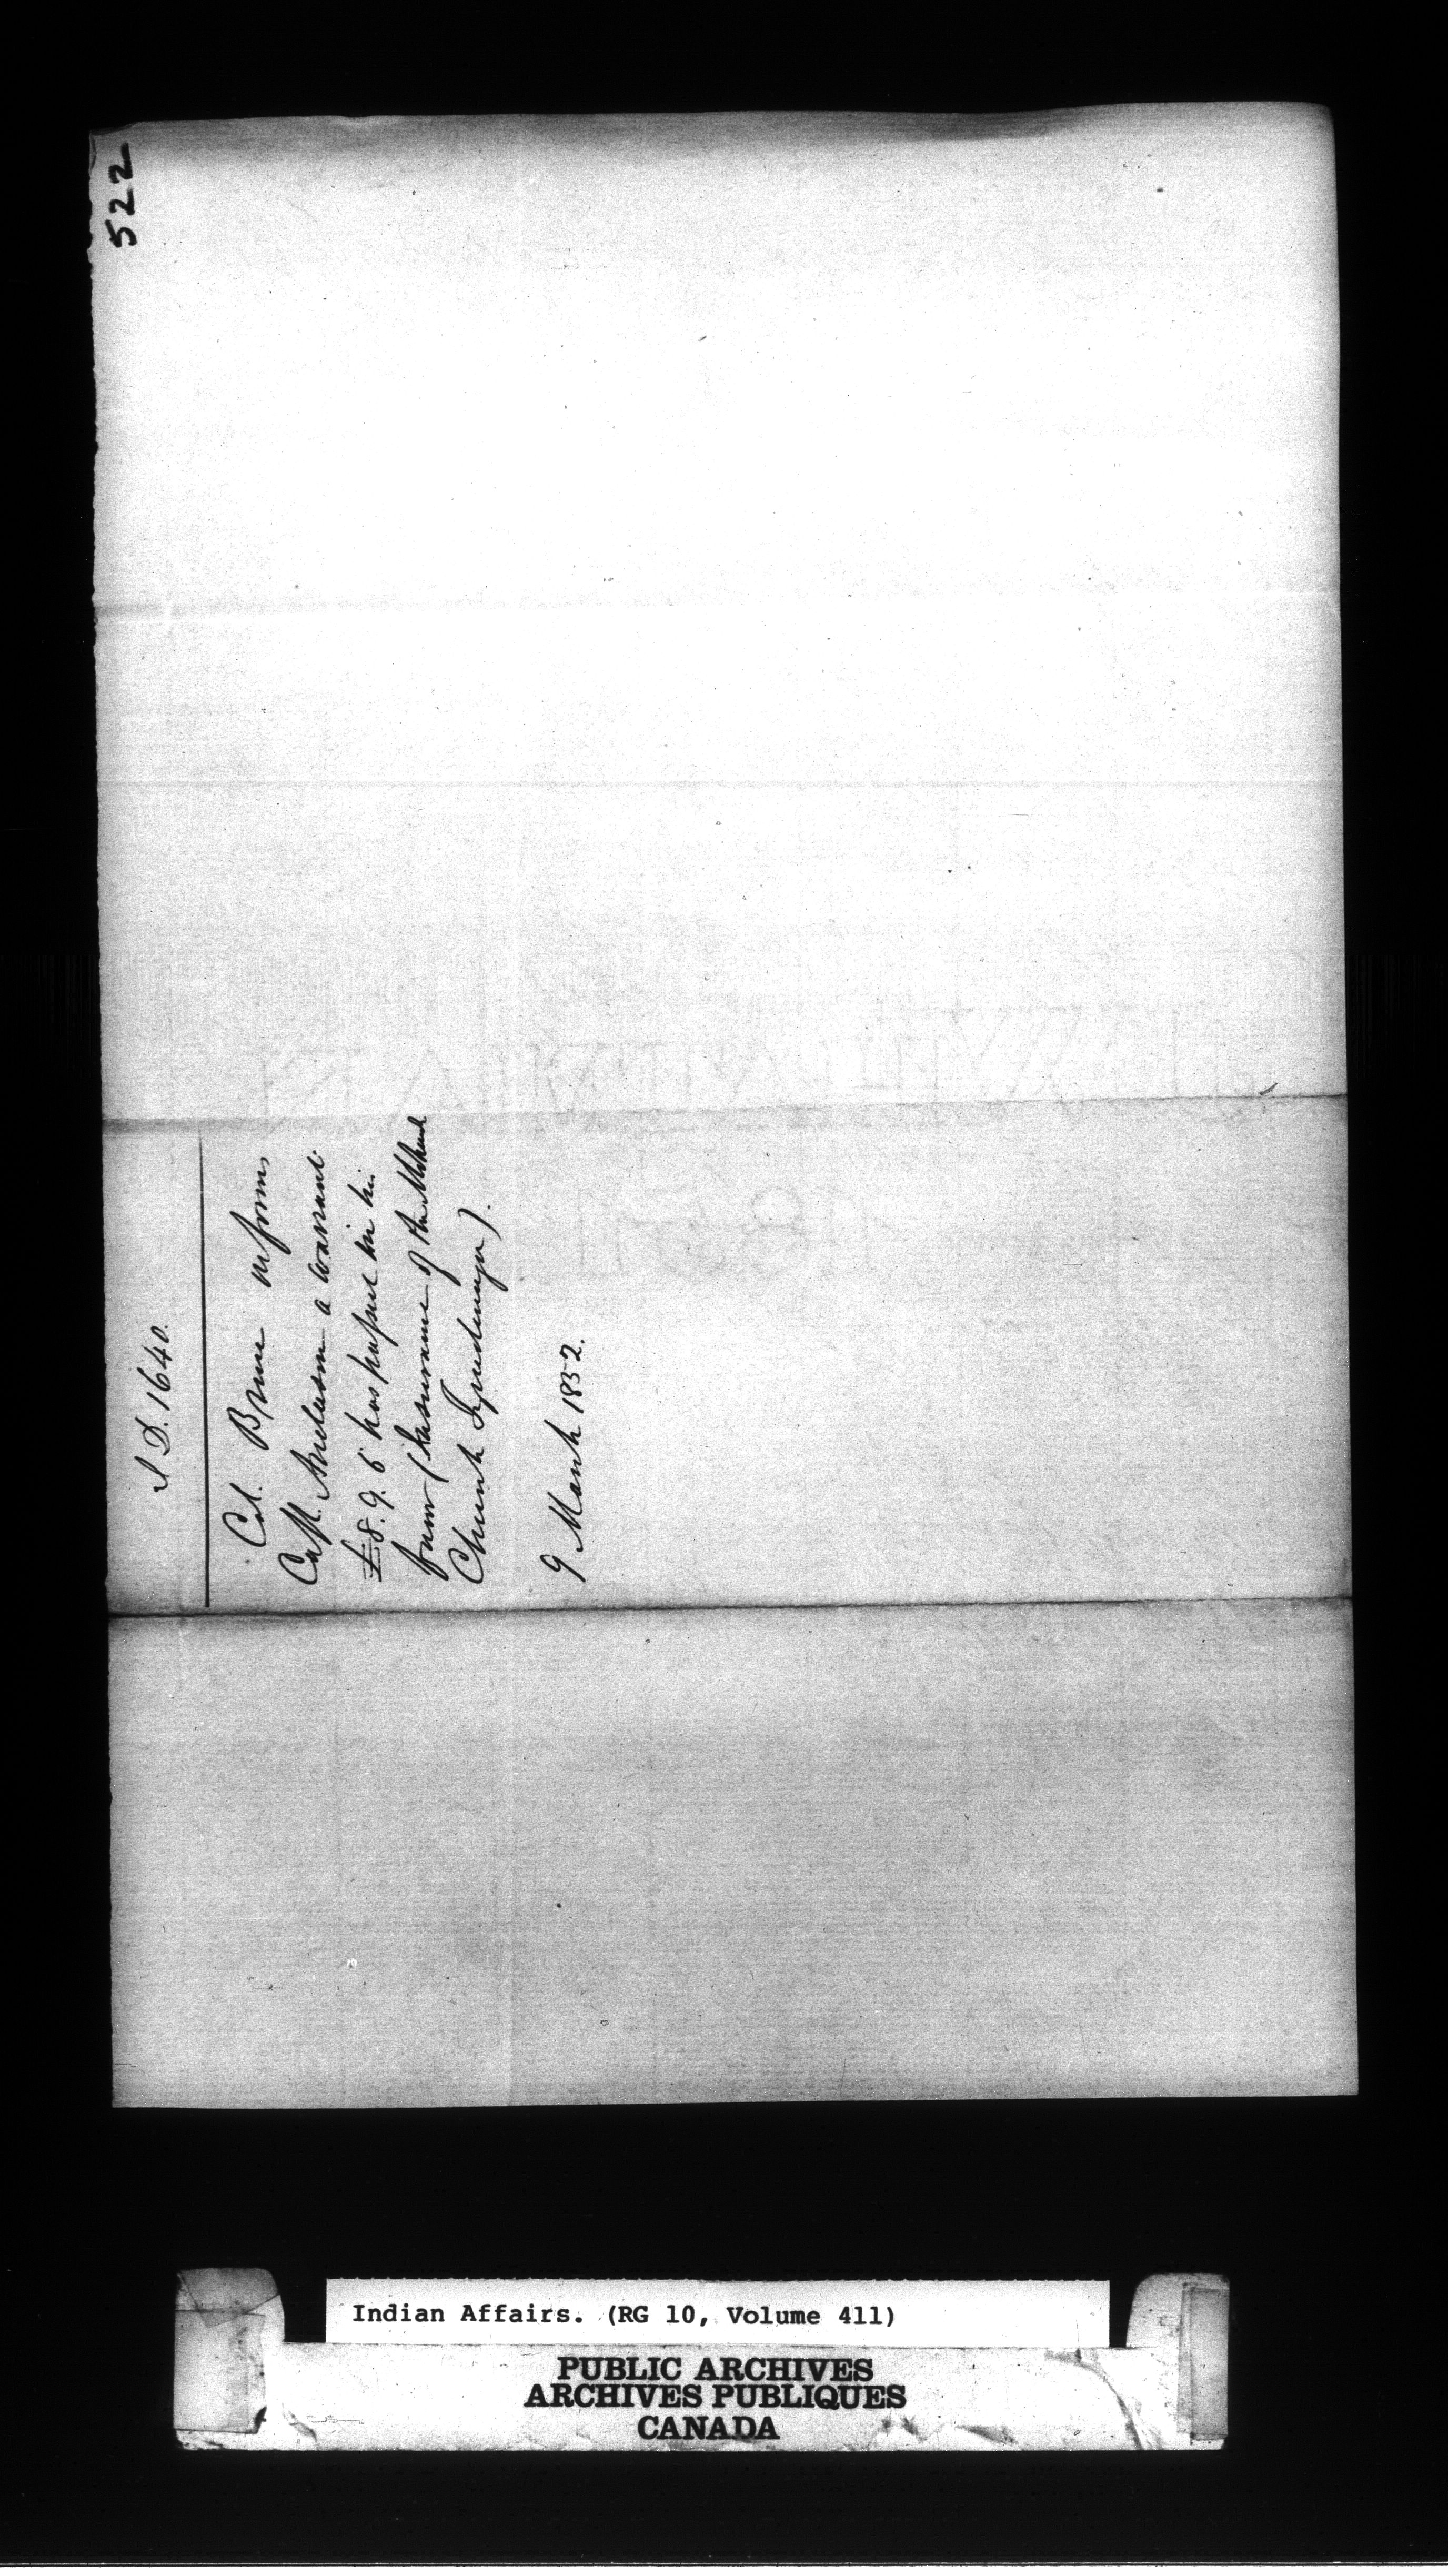 522
I.D. 1640.
Col. Bruce informs
Capt. Anderson a warrant
£8. 9. 6 has passed in his
favor (Insurance of the Mohawk
Church Tyendinaga).
9 March 1852.
Indian Affairs. (RG 10, Volume 411)
PUBLIC ARCHIVES
ARCHIVES PUBLIQUES
CANADA